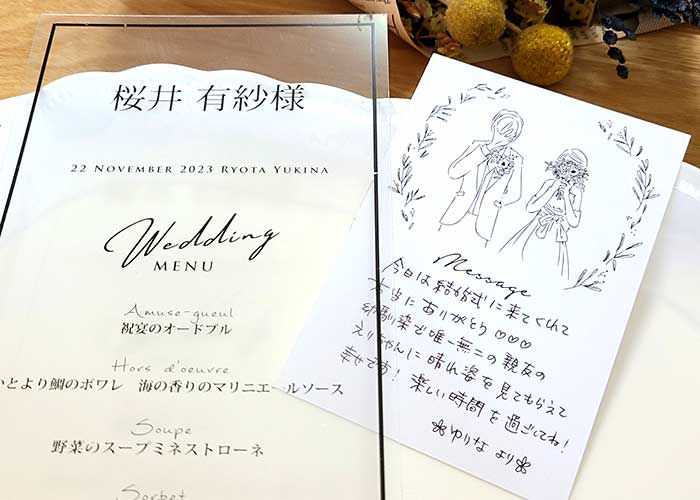 桜井 有紗様
22 NOVEMBER 2023 RYOTA YUKINA
Wedding
MENU
Amuse-gueul
祝宴のオードブル
Hors d'oeuvre
いとより鯛のポワレ 海の香りのマリニエールソース
Soupe
野菜のスープミネストローネ
Sorbet
Message
今日は結婚式に来てくれて
本当にありがとう♡♡♡
幼馴染で唯一無二の親友の
えりちゃんに晴れ姿を見てもらえて
幸せです！楽しい時間を過ごしてね！
ゆりなより